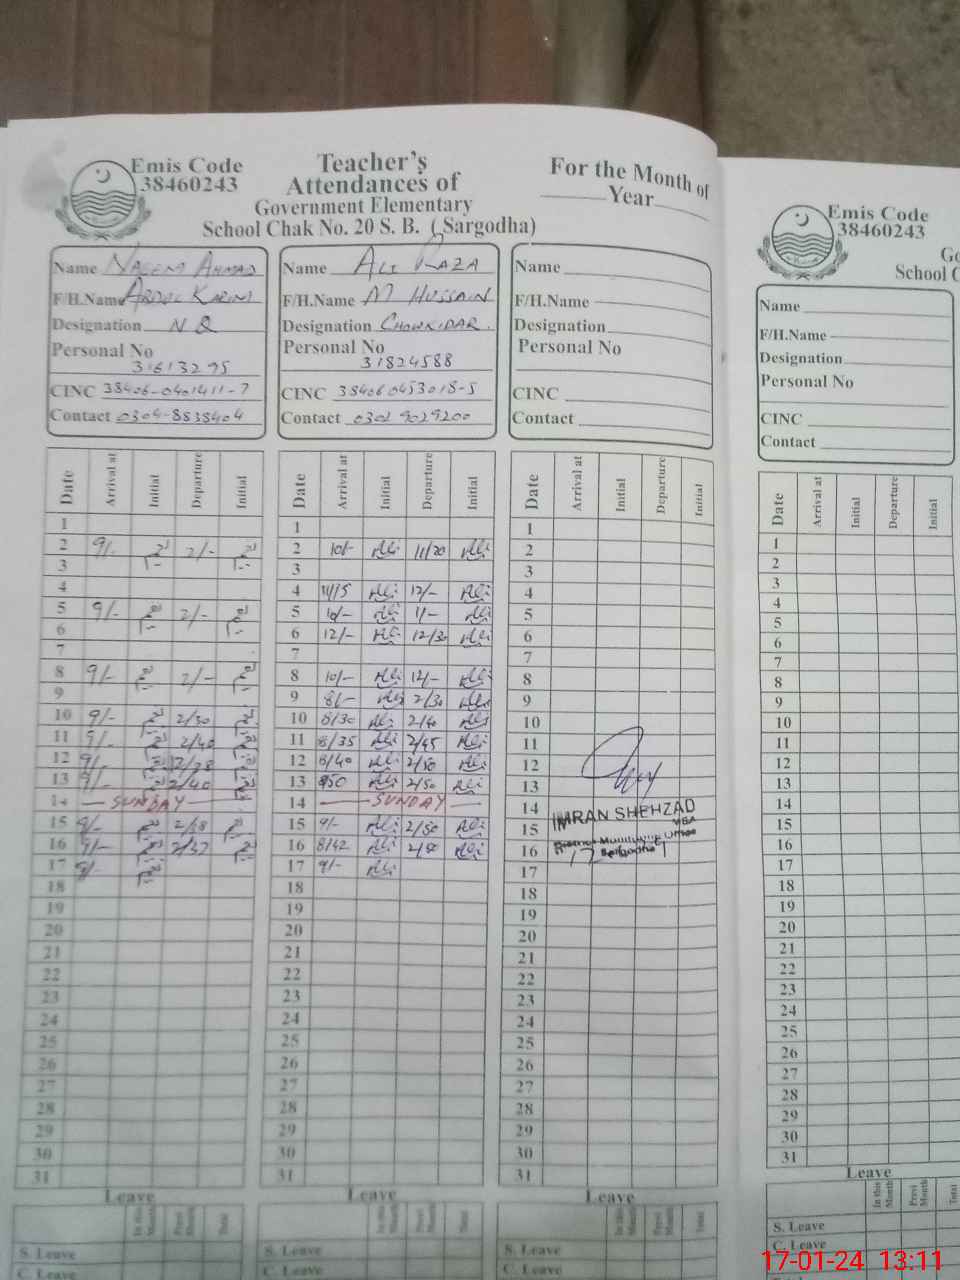 Emis Code
38460243
Teacher's
Attendances of
Government Elementary
School Chak No. 20 S. B. ( Sargodha)
For the Month of
Year
Name NAEEM AHMAD
F/H.Name ABDUL KARIM
Designation N Q
Personal No
31613295
CINC 38406-0401411-7
Contact 0304-8838404
Name ALI RAZA
F/H.Name M HUSSAIN
Designation CHOWKIDAR.
Personal No
31824588
CINC 384060453018-5
Contact 03029029200
Name
F/H.Name
Designation
Personal No
CINC
Contact
Date Arrival at Initial Departure Initial
1
2 9/- 2/-
3
4
5 9/- 2/-
6
7
8 9/- 2/-
9
10 9/- 2/30
11 9/- 2/40
12 9/- 2/38
13 9/- 2/40
14 SUNDAY
15 9/- 2/38
16 9/- 2/37
17 9/-
18
19
20
21
22
23
24
25
26
27
28
29
30
31
Leave
In this Month Previ Month Total
S. Leave
C. Leave
Date Arrival at Initial Departure Initial
1
2 10/- Ali 11/20 Ali
3
4 11/15 Ali 12/- Ali
5 10/- Ali 1/- Ali
6 12/- Ali 12/30 Ali
7
8 10/- Ali 12/- Ali
9 8/- Ali 2/30 Ali
10 8/30 Ali 2/40 Ali
11 8/35 Ali 2/45 Ali
12 8/40 Ali 2/50 Ali
13 850 Ali 2/50 Ali
14 SUNDAY
15 9/- Ali 2/50 Ali
16 8/42 Ali 2/50 Ali
17 9/- Ali
18
19
20
21
22
23
24
25
26
27
28
29
30
31
Leave
In this Month Previ Month Total
S. Leave
C. Leave
Date Arrival at Initial Departure Initial
1
2
3
4
5
6
7
8
9
10
11
12
13
14
15
16
17
18
19
20
21
22
23
24
25
26
27
28
29
30
31
IMRAN SHEHZAD
MEA
Sargodha
Leave
In this Month Previ Month Total
S. Leave
C. Leave
Emis Code
38460243
School C
Name
F/H.Name
Designation
Personal No
CINC
Contact
Date Arrival at Initial Departure Initial
1
2
3
4
5
6
7
8
9
10
11
12
13
14
15
16
17
18
19
20
21
22
23
24
25
26
27
28
29
30
31
Leave
In this Month Previ Month Total
S. Leave
C. Leave
17-01-24 13:11